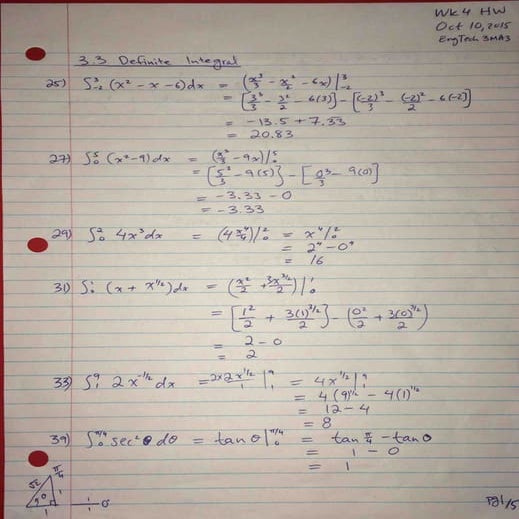 Wk 4 HW
Oct 10, 2015
EngTech 3MA3
3.3 Definite Integral
25) ∫₋₂³ (x² - x - 6)dx = (x³/3 - x²/2 - 6x)|₋₂³
= [3³/3 - 3²/2 - 6(3)] - [(-2)³/3 - (-2)²/2 - 6(-2)]
= -13.5 + 7.33
= 20.83
27) ∫₀⁵ (x² - 9)dx = (x³/3 - 9x)|₀⁵
= [5³/3 - 9(5)] - [0³/3 - 9(0)]
= -3.33 - 0
= -3.33
29) ∫₀² 4x³dx = (4x⁴/4)|₀² = x⁴|₀²
= 2⁴ - 0⁴
= 16
31) ∫₀¹ (x + x^(1/2))dx = (x²/2 + 3x^(3/2)/2)|₀¹
= [1²/2 + 3(1)^(3/2)/2] - (0²/2 + 3(0)^(3/2)/2)
= 2 - 0
= 2
33) ∫₁⁹ 2x^(-1/2) dx = 2×2x^(1/2)/1 |₁⁹ = 4x^(1/2)|₁⁹
= 4(9)^(1/2) - 4(1)^(1/2)
= 12 - 4
= 8
39) ∫₀^(π/4) sec²θ dθ = tanθ|₀^(π/4) = tan π/4 - tan 0
= 1 - 0
= 1
√2 π/4 1 1
pg1/5